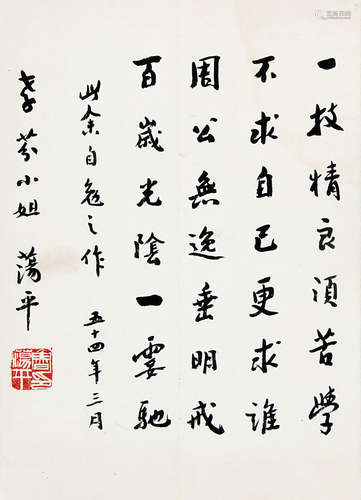 一技精良須苦學
不求自己更求誰
周公無逸垂明戒
百歲光陰一霎馳
此余自勉之作 五十四年三月
孝芬小姐 蕩平